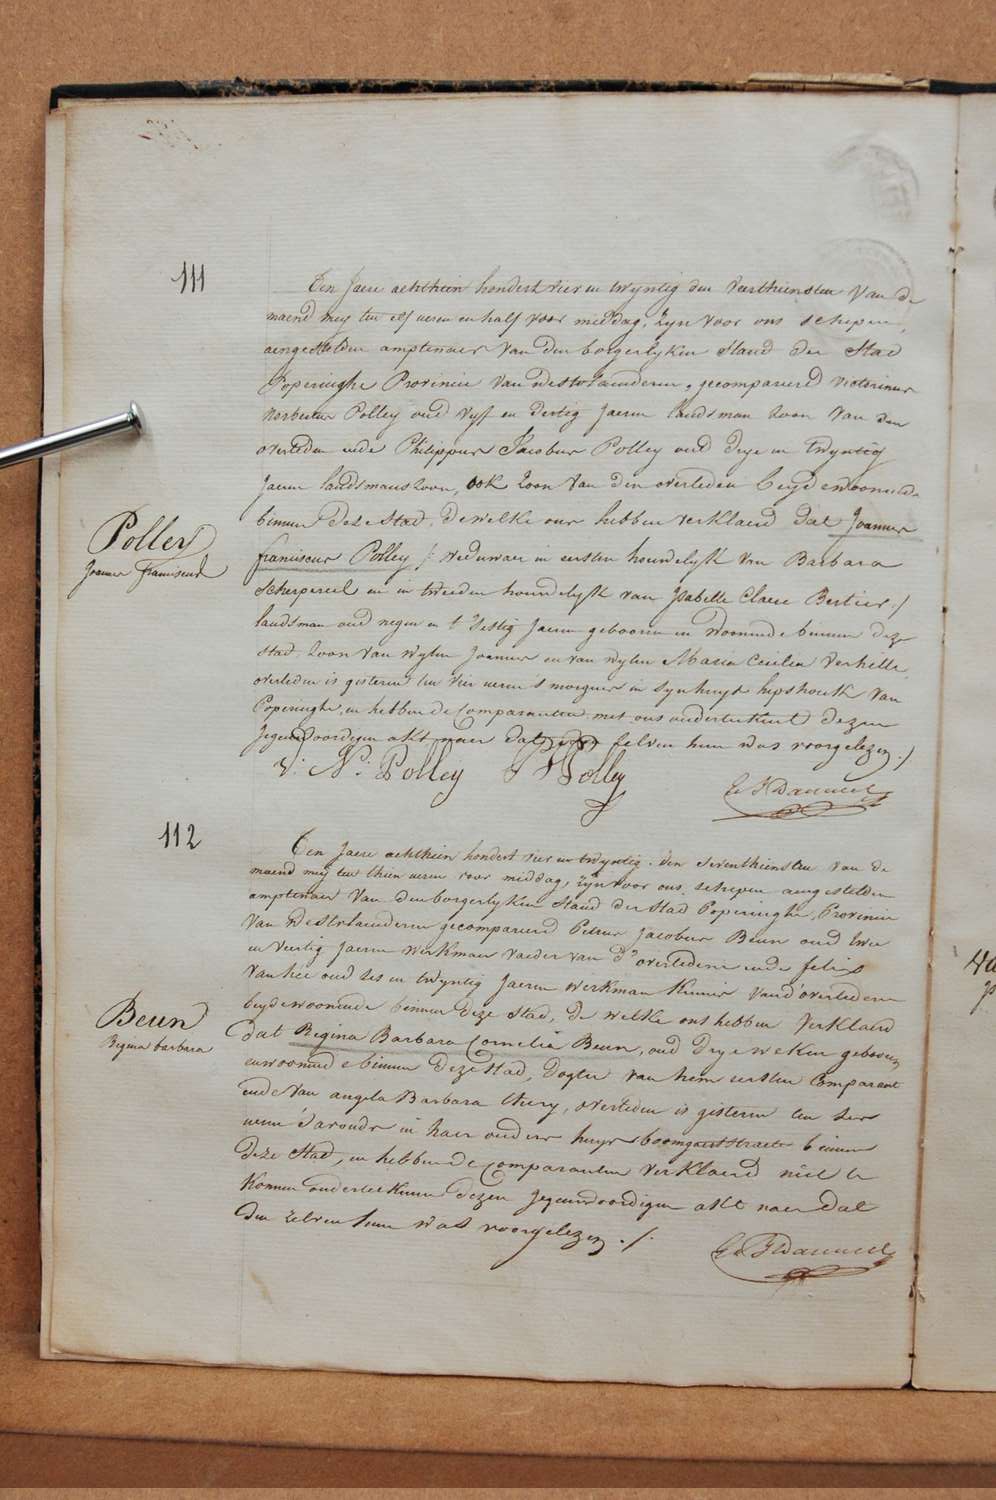 111
Den Jaere achthien hondert vier en twyntig den veerthiensten van de
maend mey ten elf ueren en half voor middag, zyn voor ons schepen,
aengestelden amptenaer van den borgerlyken Stand der Stad
Poperinghe Provincie van westvlaenderen, gecompareerd victorinus
Norbertus Polley oud vyf en dertig Jaeren landsman zoon van den
overleden ende Philippus Jacobus Polley oud drye en twyntig
Jaeren landsmans zoon, ook zoon van den overleden beyde woonende
binnen deze Stad, dewelke ons hebben verklaerd dat Joannes
Polley
Joannes franciscus
franciscus Polley /: weduwaer in eersten houwelyk van Barbara
Scherpereel en in tweeden houwelyk van Isabelle Claere Bertier :/
landsman oud negen en t'sestig Jaeren gebooren en woonende binnen deze
stad, zoon van wylen Joannes en van wylen Maria Cecilia Verhille,
overleden is gisteren ten vier ueren s'morgens in syn huys hipshoek van
Poperinghe, en hebben de Comparanten met ons onderteekent dezen
Jegenwoordigen akt naer dat selven hun was voorgelezen ./
V: N: Polley P J Polley
112
Den Jaere achthien hondert vier en twyntig den seventhiensten van de
maend mey ten thien ueren voor middag, zyn voor ons schepen aengestelden
amptenaer van den borgerlyken Stand der Stad Poperinghe, Provincie
van westvlaenderen gecompareerd Petrus Jacobus Beun oud twee
en veertig Jaeren werkman vaeder van d'overledene ende felix
vanhée oud ses en twyntig Jaeren werkman kennis van d'overledene
beyde woonende binnen deze Stad, de welke ons hebben verklaerd
Beun
Regina barbara
dat Regina Barbara Cornelia Beun, oud drye weken gebooren
en woonende binnen deze stad, dogter van hem eersten Comparant
ende van angela Barbara thery, overleden is gisteren ten ses
ueren s'avonds in haer ouders huys boomgaertstraete binnen
deze Stad, en hebben de comparanten verklaerd niet te
konnen onderteekenen dezen Jegenwoordigen akt naer dat
den zelven hun was voorgelezen ./.